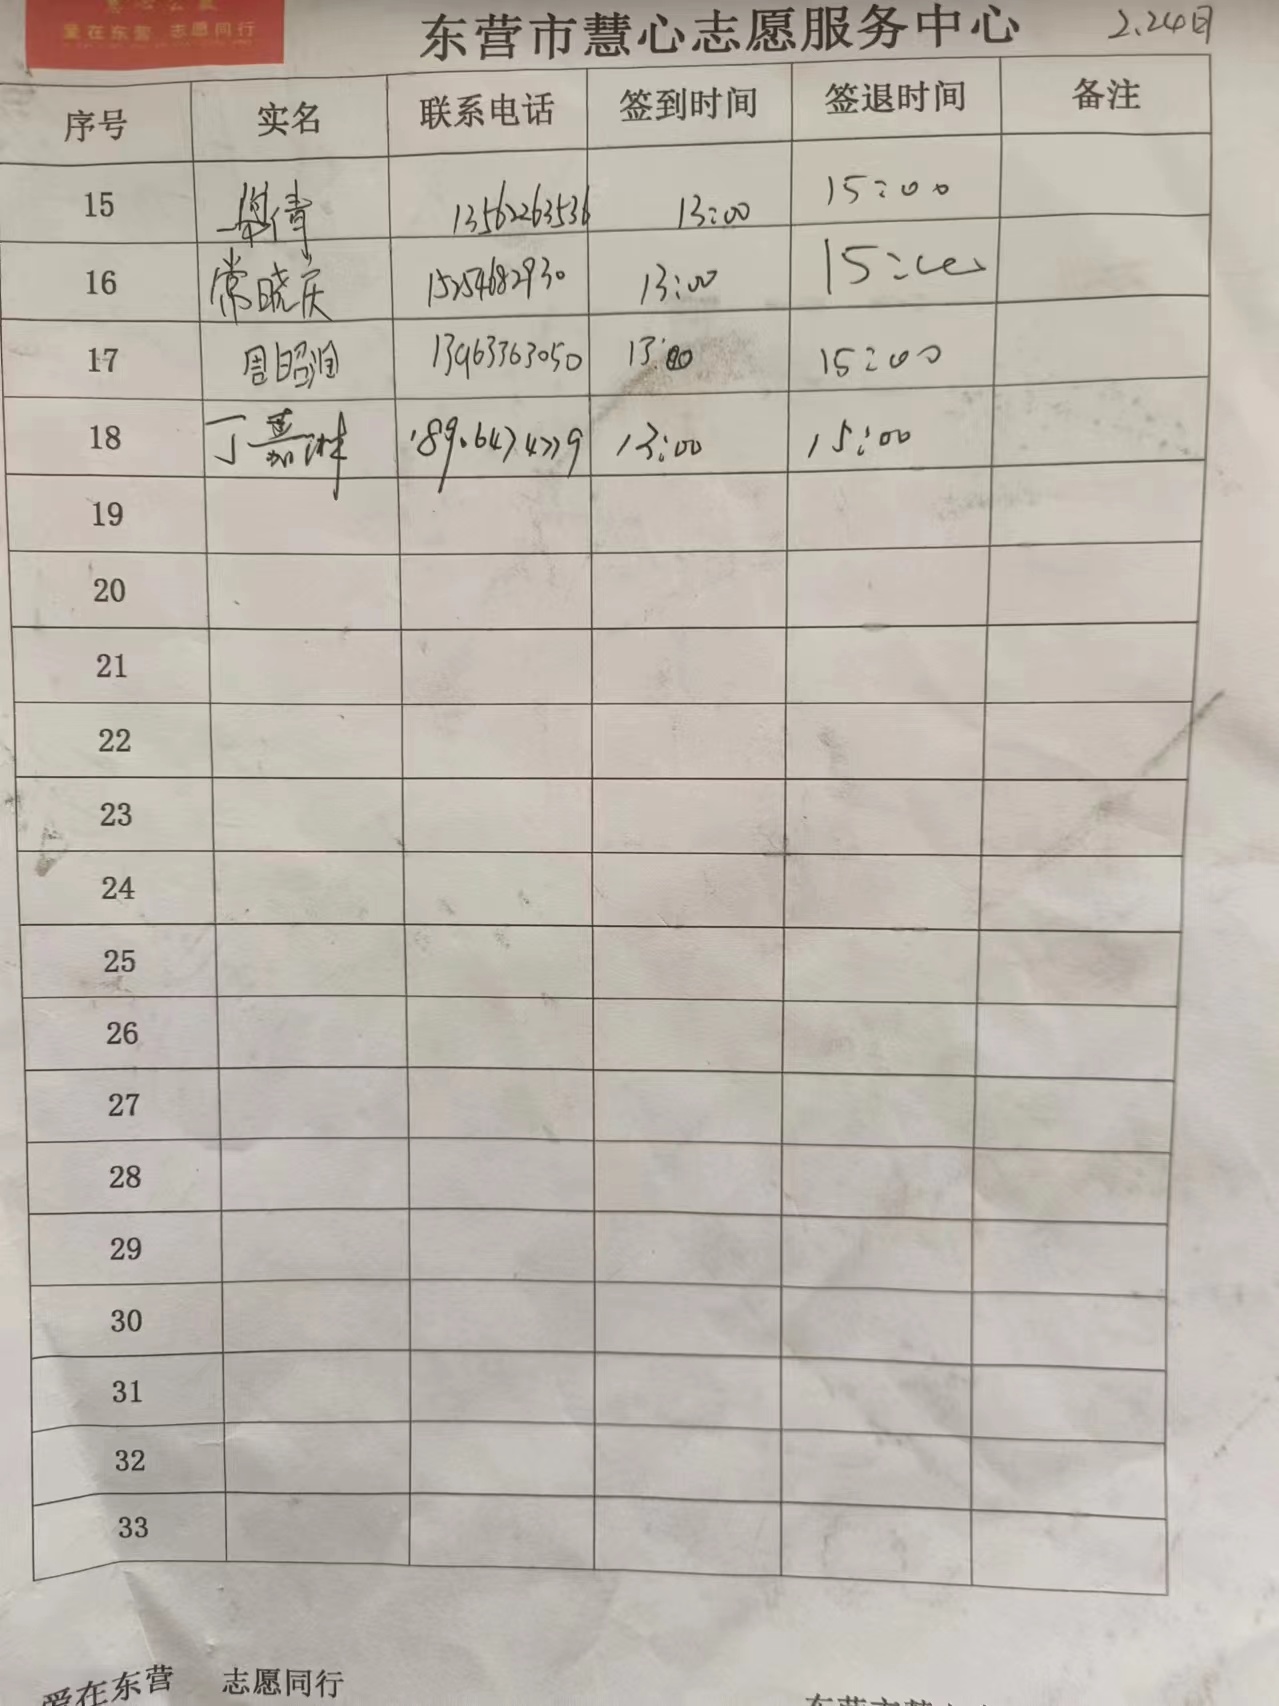 慧心公益
爱在东营 志愿同行
东营市慧心志愿服务中心 2.24日
序号 实名 联系电话 签到时间 签退时间 备注
15 倩 13562263536 13:00 15:00
16 常晓庆 15254682930 13:00 15:00
17 周昭润 13963363050 13:00 15:00
18 丁嘉琳 13:00 15:00
19
20
21
22
23
24
25
26
27
28
29
30
31
32
33
爱在东营 志愿同行